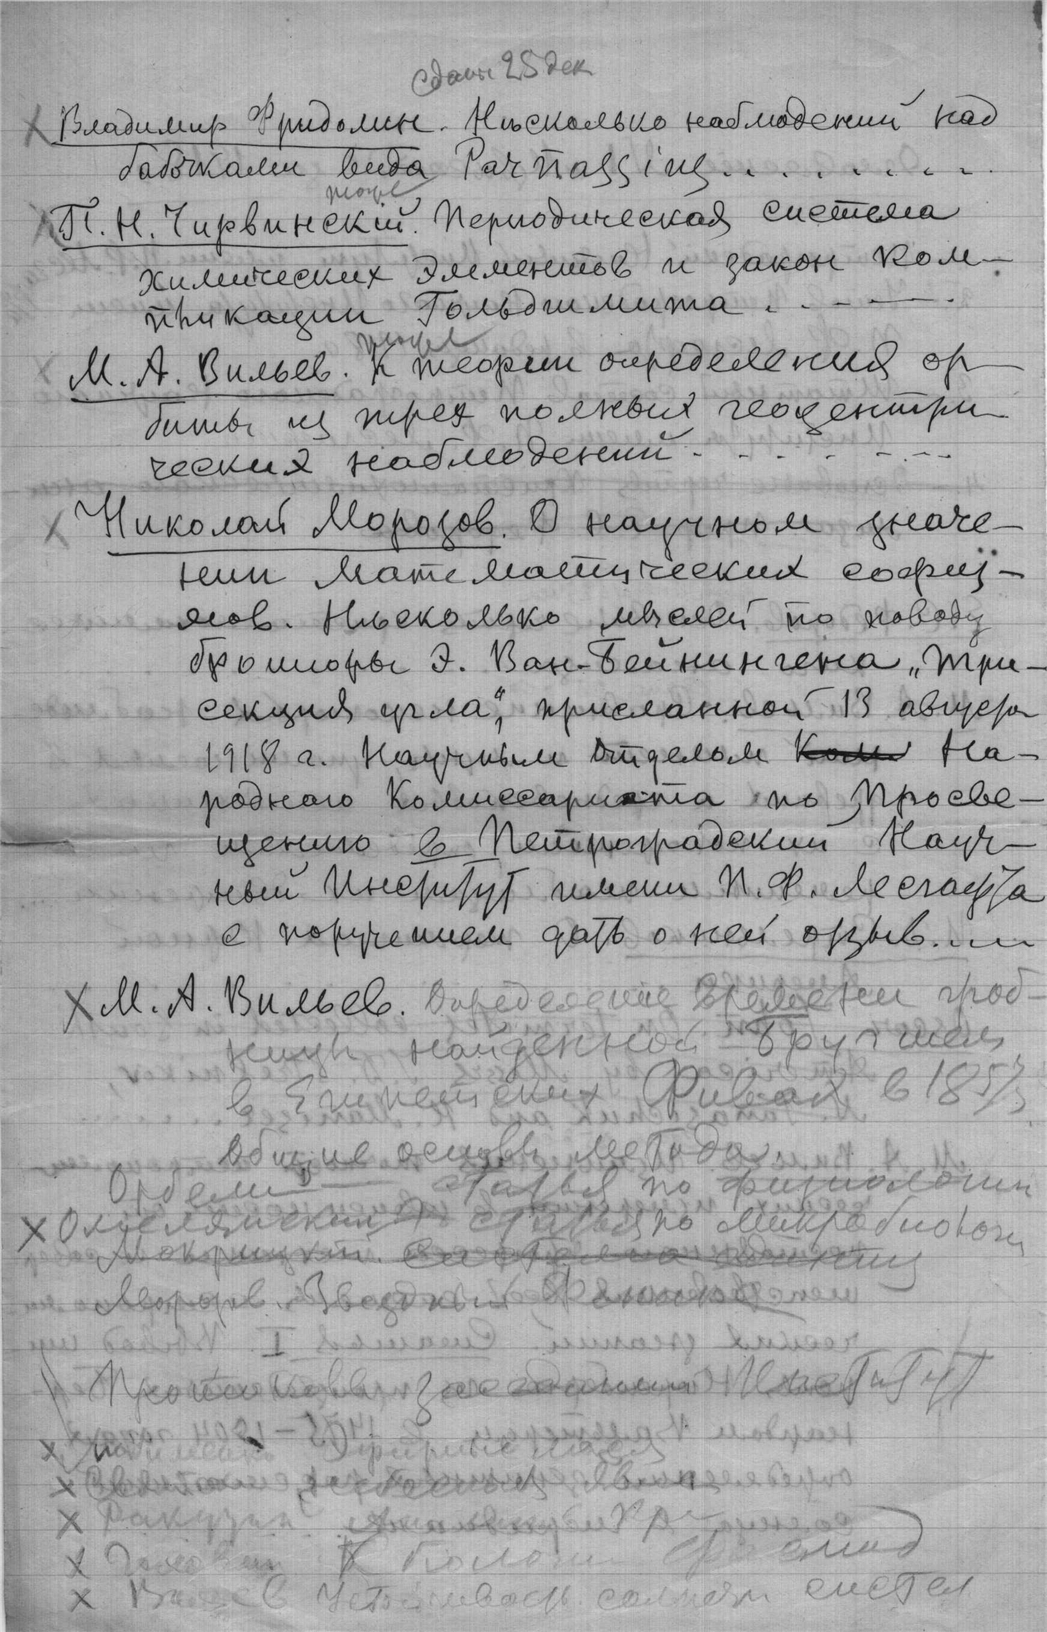 сдан 25 дек
Владимир Фридолин. Нѣсколько наблюдений над
бабочками вида Parnassius........
тоже
П. Н. Чирвинский. Периодическая система
химических элементов и закон ком-
пликации Гольдшмита . . - — .
тоже
М. А. Вильев. К теории определения ор-
биты из трех полных геоцентри-
ческих наблюдений . . . . . . . .
Николай Морозов. О научном значе-
нии математических софиз-
мов. Нѣсколько мыслей по поводу
брошюры Э. Ван-Бейнингена „Три-
секция угла“, присланной 13 августа
1918 г. Научным Отделом Ком На-
родного Комиссариата по Просве-
щению в Петроградский Науч-
ный Институт имени П. Ф. Лесгафта
с поручением дать о ней отзыв....
М. А. Вильев. Определение времени гроб-
ницы найденной Бругшем
в Египетских Фивах в 1857
Общие основы метода.
Орбели — Статья по физиологии
Омелянский статья по микробиологи
Мокрицкий.
Морозов. Звездный
Протоколы заседании Институт
Ракузин
К биологии
Устойчивость солнечн систем